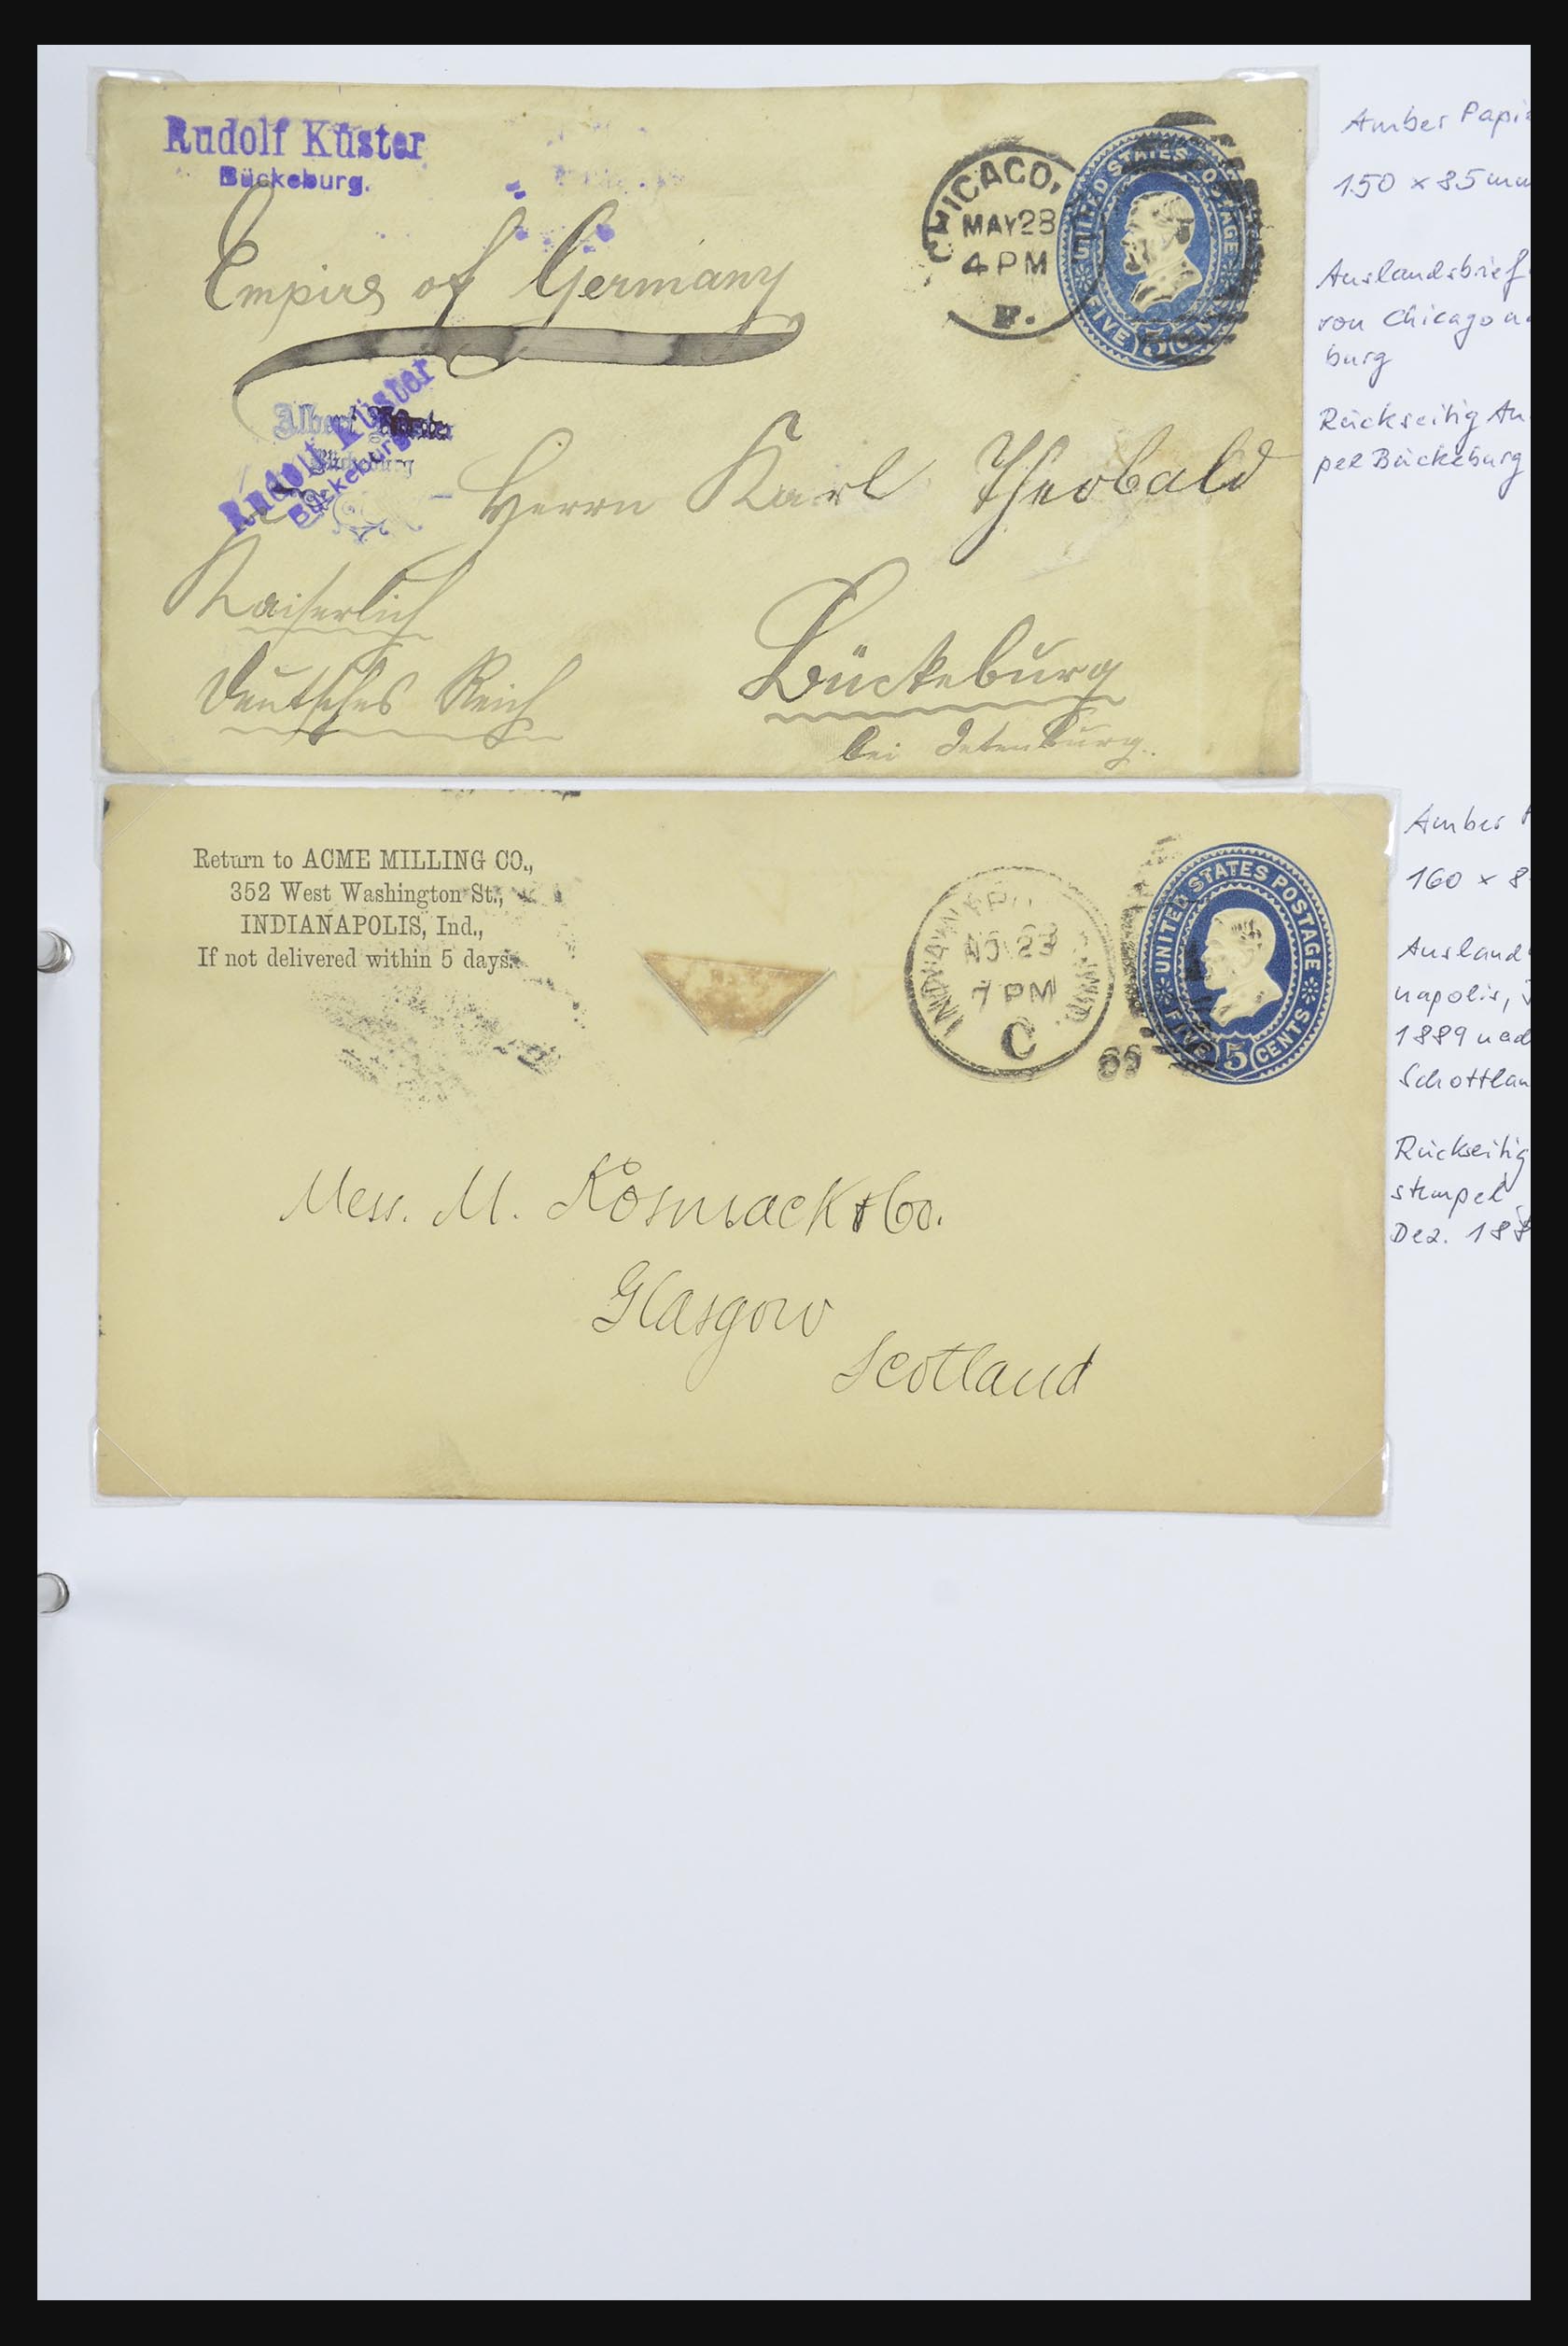 Rudolf Küster
Bückeburg.
Empire of Germany
CHICAGO,
MAY 28
4 PM
F.
UNITED STATES POSTAGE
FIVE 5 CENTS
Rudolf Küster
Bückeburg
Albert
Herrn Karl Theobald
Kaiserlich
Deutsches Reich
Bückeburg
bei
Amber Papi
150 × 85 mm
Auslandsbrief
von Chicago n
burg
Rückseitig An
pel Bückeburg
Return to ACME MILLING CO.,
352 West Washington St.,
INDIANAPOLIS, Ind.,
If not delivered within 5 days.
INDIANAPOLIS, IND.
NO 23
7 PM
C
UNITED STATES POSTAGE
FIVE 5 CENTS
Mess. M. Kosmack & Co.
Glasgow
Scotland
Amber
160 × 8
Ausland
napolis,
1889 nach
Schottlan
Rückseitig
stempel
Dez. 188